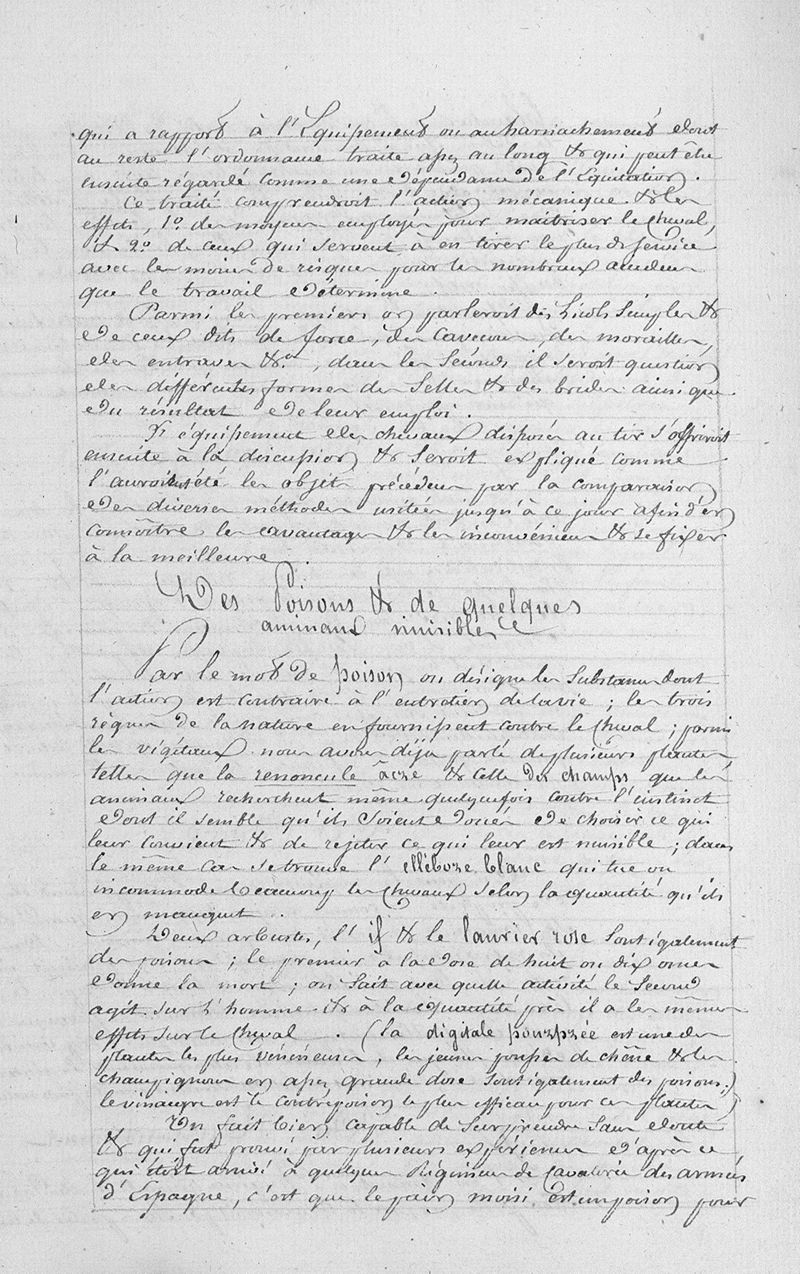 qui a rapport à l'Equipement ou au harnachement dont
au reste l'ordonnance traite assez au long & qui peut être
ensuite régardé comme une dépendance de l'Equitation.
Ce traité comprendroit l'action mécanique & les
effets, 1o. des moyens employés pour maitriser le Cheval,
& 2o. de ceux qui servent à en tirer le plus de service
avec les moins de risques pour les nombreux accidens
que le travail détermine.
Parmi les premiers on parleroit des Licols simples &
de ceux dits de force, des Caveçons, des morailles,
des entraves &ca, dans les Seconds il seroit question
des différentes formes des Selles & des brides ainsi que
du résultat de leur emploi.
L'équipement des chevaux disposés au tir s'offriroit
ensuite à la discussion & seroit expliqué comme
l'auroient été les objets précédens par la comparaison
des diverses méthodes usitées jusqu'à ce jour afin d'en
connoître les avantages & les inconvéniens & se fixer
à la meilleure.
Des Poisons & de quelques
aminaux nuisibles
Par le mot de poison on désigne les Substances dont
l'action est contraire à l'entretien de la vie ; les trois
règnes de la nature en fournissent contre le Cheval ; parmi
les végétaux nous avons déja parlé de plusieurs plantes
telles que la renoncule âcre & celle des champs que les
animaux recherchent même quelquefois contre l'instinct
dont il semble qu'ils soient doués de choisir ce qui
leur convient & de rejeter ce qui leur est nuisible ; dans
le même cas se trouve l'ellébore blanc qui tue ou
incommode beaucoup les Chevaux selon la quantité qu'ils
en mangent.
Deux arbustes, l'if & le laurier rose sont également
des poisons ; le premier à la dose de huit ou dix onces
donne la mort ; on sait avec quelle activité le Second
agit sur l'homme & à la quantité près il a les mêmes
effets sur le Cheval. (la digitale pourprée est une des
plantes les plus vénéneuses, les jeunes pousses de chêne & les
champignons en assez grande dose sont également des poisons ;
le vinaigre est le contrepoison le plus efficace pour ces plantes)
Un fait bien capable de surprendre sans doute
& qui fut prouvé par plusieurs expériences d'après ce
qui étoit arrivé à quelques Régimens de Cavalerie des armées
d'Espagne, c'est que le pain moisi est un poison pour